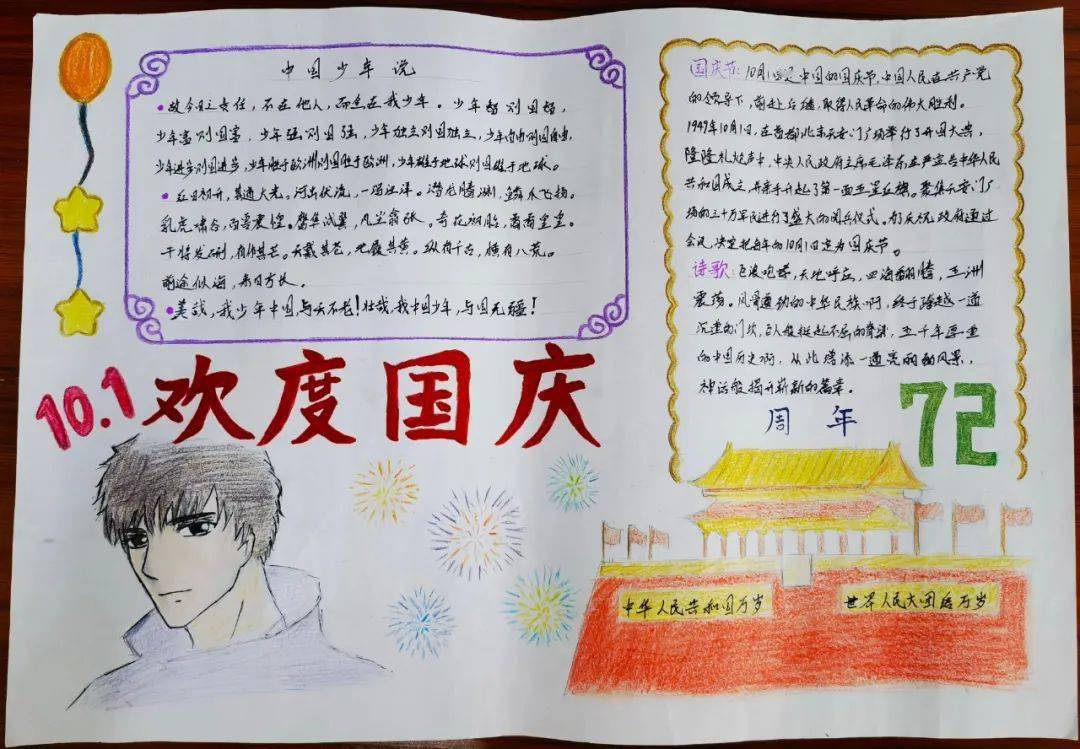 中国少年说
•故今日之责任，不在他人，而全在我少年。少年智则国智，
少年富则国富，少年强则国强，少年独立则国独立，少年自由则国自由，
少年进步则国进步，少年胜于欧洲则国胜于欧洲，少年雄于地球则国雄于地球。
•红日初升，其道大光。河出伏流，一泻汪洋。潜龙腾渊，鳞爪飞扬。
乳虎啸谷，百兽震惶。鹰隼试翼，风尘翕张。奇花初胎，矞矞皇皇。
干将发硎，有作其芒。天戴其苍，地履其黄。纵有千古，横有八荒。
前途似海，来日方长。
•美哉，我少年中国，与天不老！壮哉，我中国少年，与国无疆！
10.1 欢度国庆
国庆节：10月1日是中国的国庆节，中国人民在共产党
的领导下，前赴后继，取得人民革命的伟大胜利。
1949年10月1日，在首都北京天安门广场举行了开国大典，
隆隆礼炮声中，中央人民政府主席毛泽东庄严宣告中华人民
共和国成立，并亲手升起了第一面五星红旗。聚集天安门广
场的三十万军民进行了盛大的阅兵仪式。为了庆祝，政府通过
会议，决定把每年的10月1日定为国庆节。
诗歌：巨浪咆哮，天地呼应，四海翻腾，五洲
震荡。风骨遒劲的中华民族啊，终于跨越一道
沉重的门坎，巨人般挺起不屈的脊梁，五千年厚重
的中国历史啊，从此增添一道亮丽的风景，
神话般揭开崭新的篇章。
周年 72
中华人民共和国万岁
世界人民大团结万岁